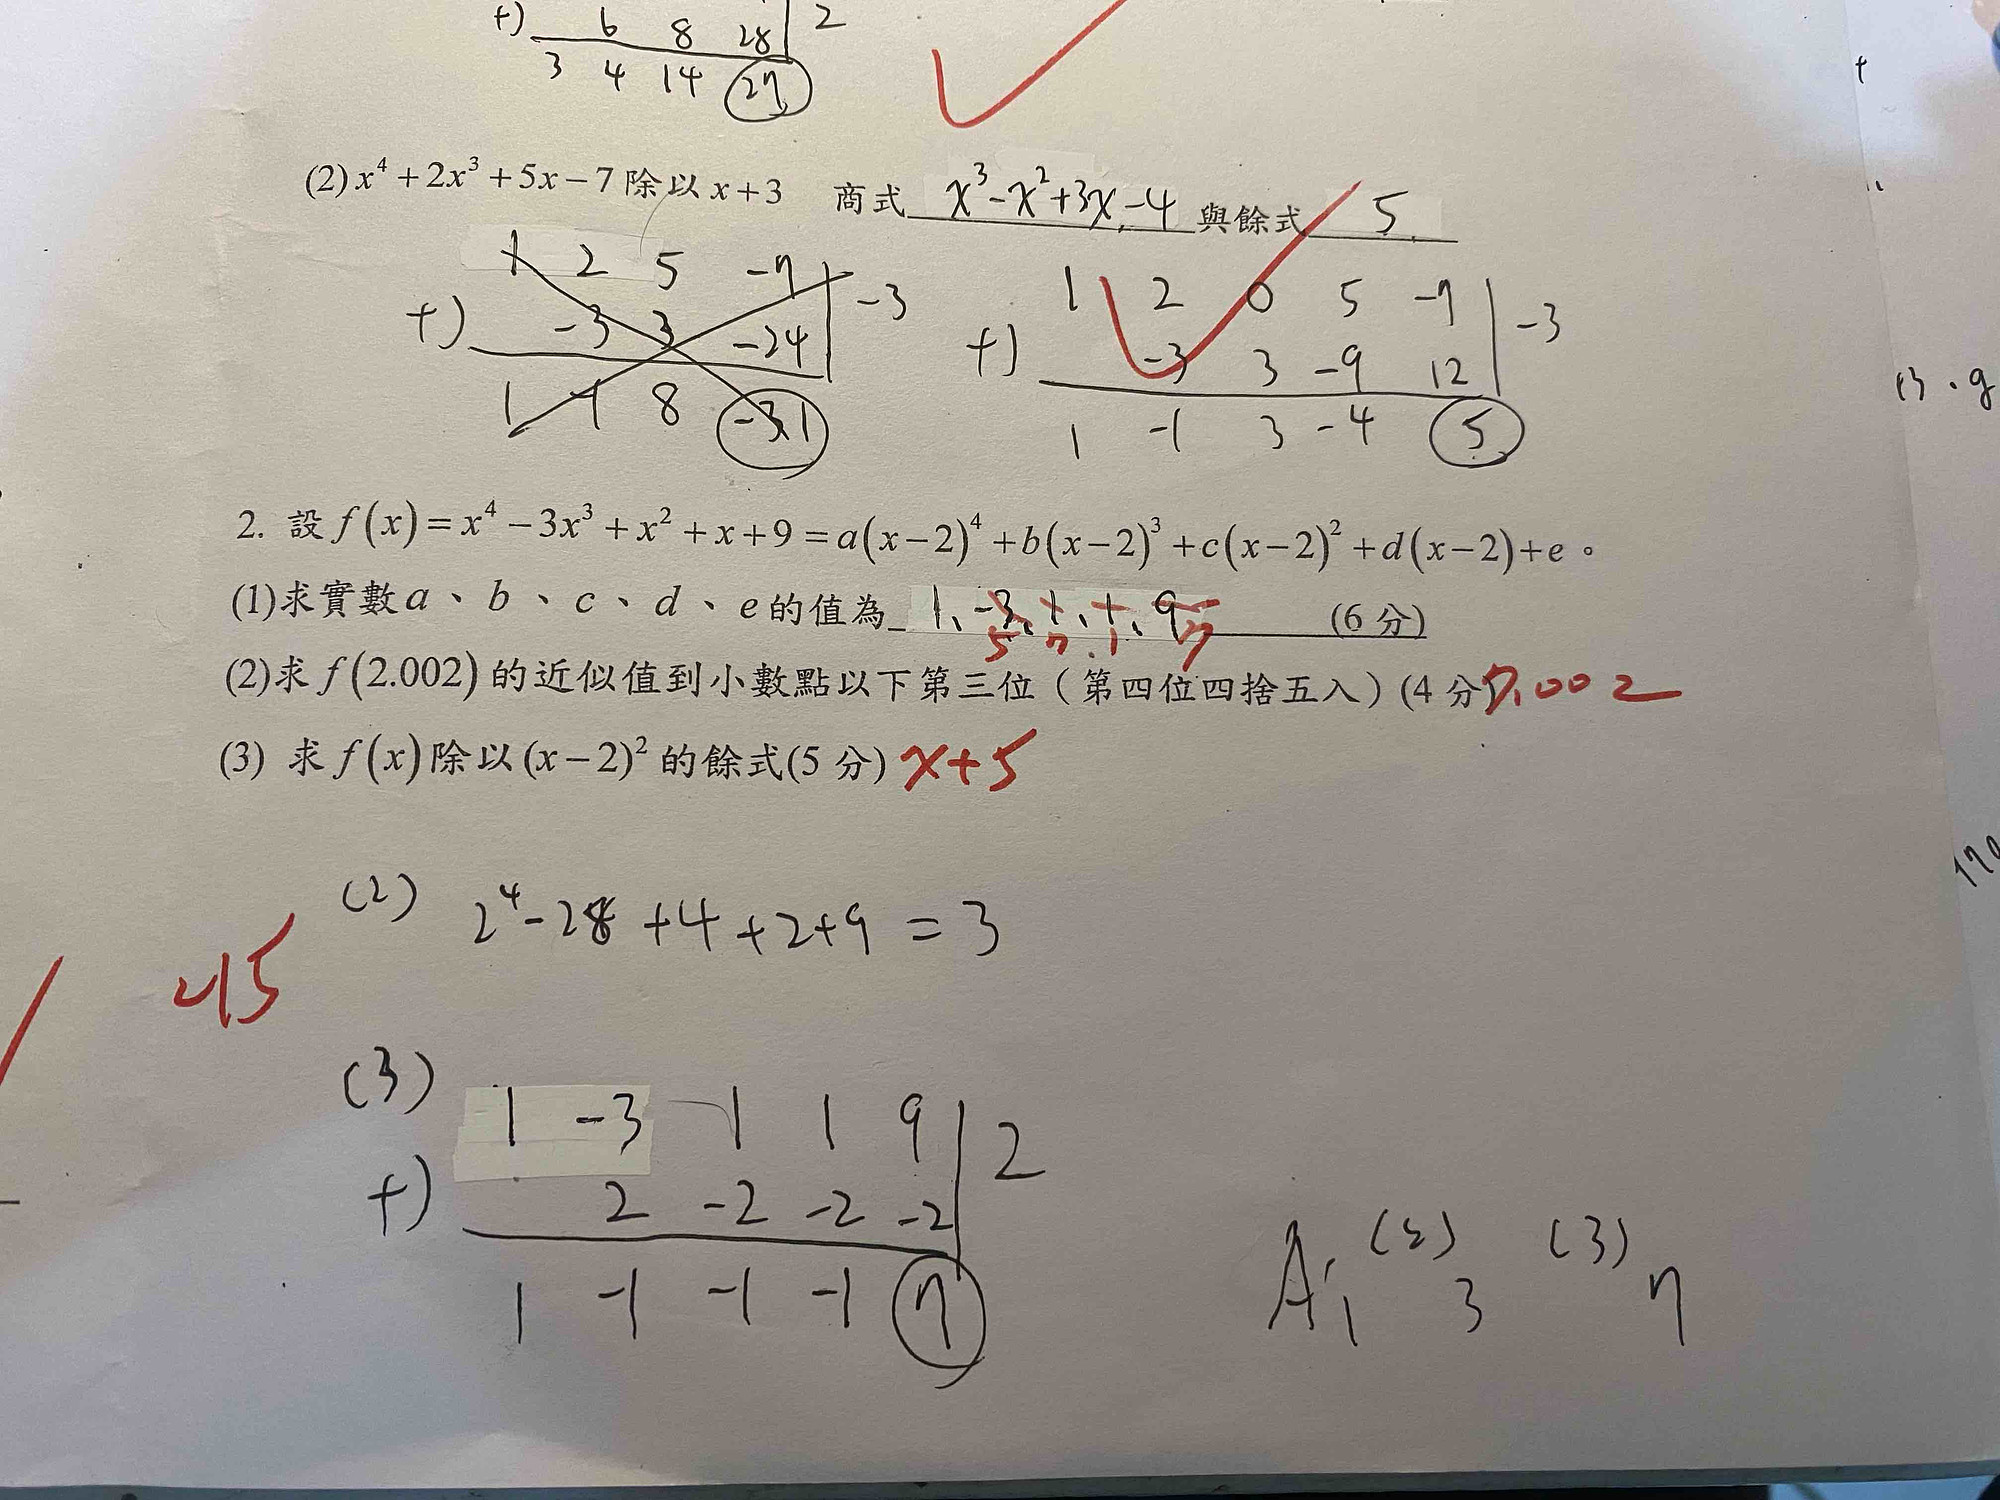 +) 6 8 28 2
3 4 14 27
(2) x⁴ + 2x³ + 5x − 7 除以 x + 3 商式 x³ − x² + 3x − 4 與餘式 5
1 2 5 -7 -3
+) -3 3 -24
1 -1 8 -31
1 2 0 5 -7 -3
+) -3 3 -9 12
1 -1 3 -4 5
2. 設 f(x) = x⁴ − 3x³ + x² + x + 9 = a(x−2)⁴ + b(x−2)³ + c(x−2)² + d(x−2) + e。
(1)求實數 a、b、c、d、e 的值為 1、-3、1、1、9 (6 分)
5 7 1 7
(2)求 f(2.002) 的近似值到小數點以下第三位(第四位四捨五入)(4 分) 7.002
(3) 求 f(x) 除以 (x−2)² 的餘式(5 分) x+5
(2) 2⁴ - 28 + 4 + 2 + 9 = 3
-15
(3)
1 -3 1 1 9 2
+) 2 -2 -2 -2
1 -1 -1 -1 7
A: (2) 3 (3) 7